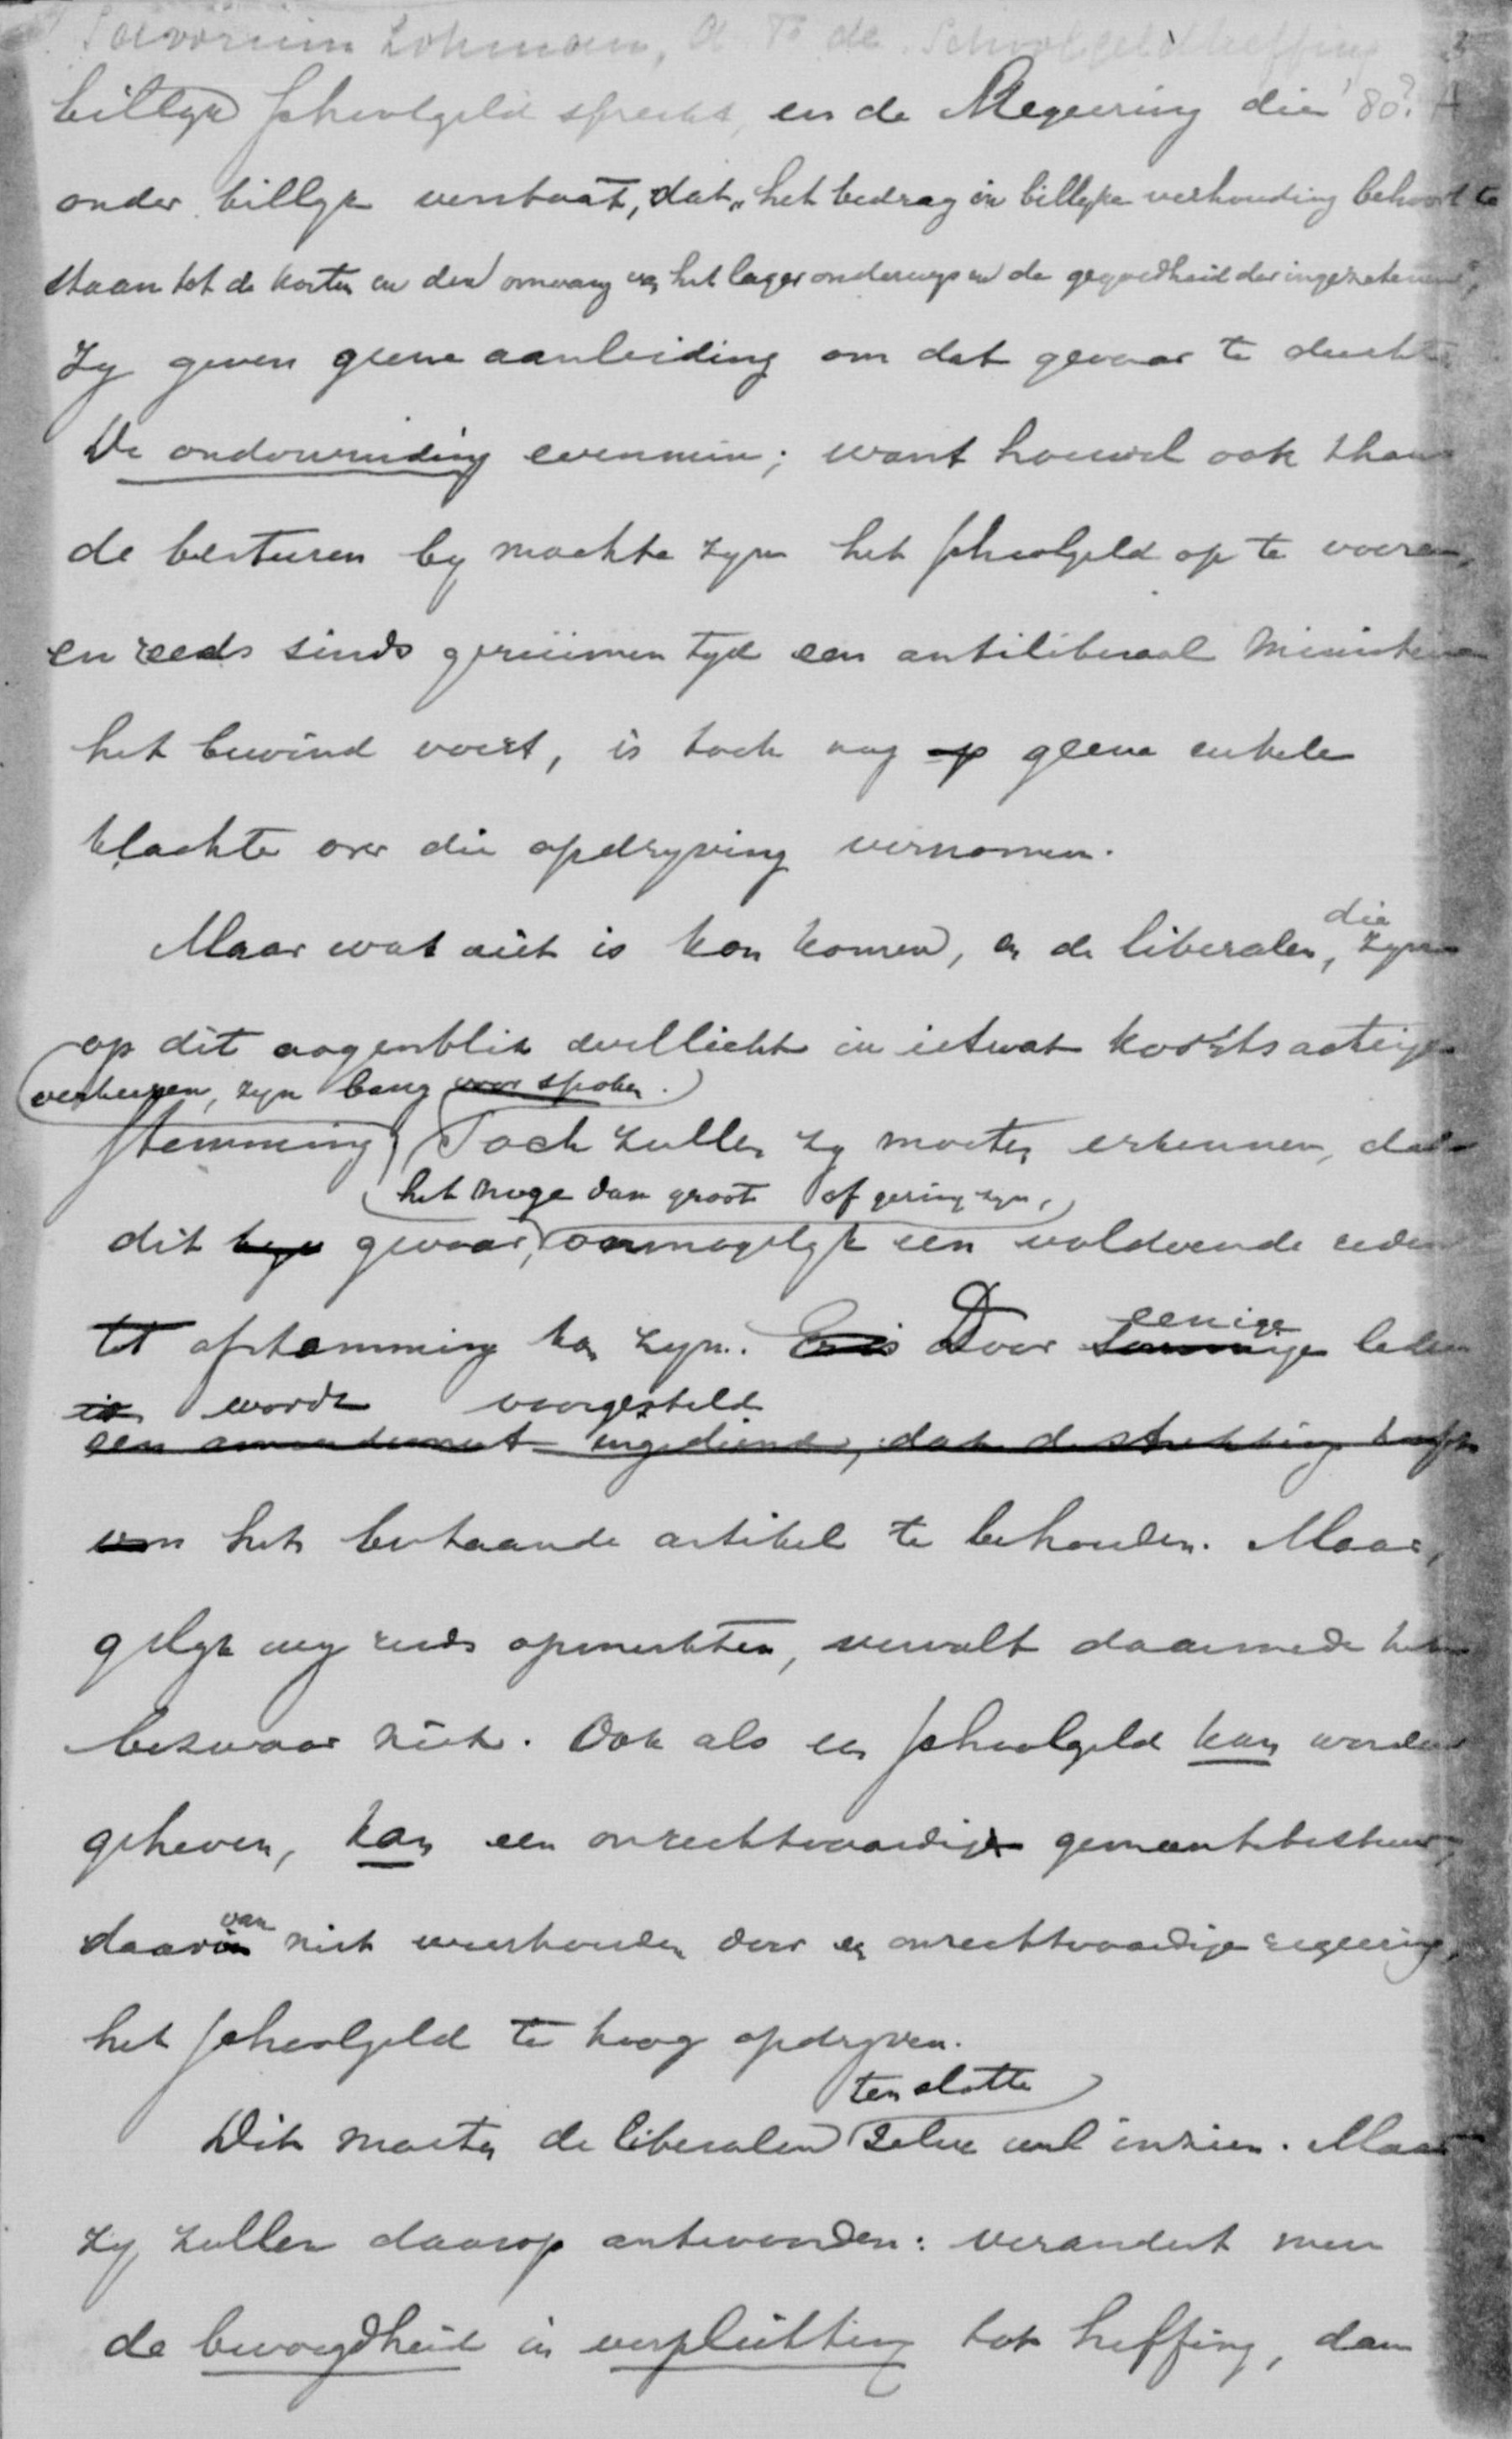 Savornin Lohman, A. F. de Schoolgeldheffing
billyk schoolgeld spreekt, en de Regeering die '80?
onder billyk verstaat, dat „het bedrag in billyke verhouding behoort te
staan tot de kosten en den omvang van het lager onderwys en de gegoedheid der ingezetenen",
zy geven geene aanleiding om dat gevaar te duchten.
De ondervinding evenmin; want hoewel ook thans
de besturen by machte zyn het schoolgeld op te voeren,
en reeds sinds geruimen tyd een antiliberaal ministerie
het bewind voert, is toch nog op geene enkele
klachte over die opdryving vernomen.
Maar wat niet is kan komen, en de liberalen, die zyn
op dit oogenblik wellicht in ietwat koortsachtige
verkeeren, zyn bang voor spoken.
stemming Toch zullen zy moeten erkennen, dat
het moge dan groot of gering zyn,
dit gevaar, onmogelyk een voldoende reden
tot afstemming kan zyn. Er is Door sommige eenige leden
is wordt voorgesteld
een amendement ingediend, dat de strekking heeft
om het bestaande artikel te behouden. Maar,
gelyk wy reeds opmerkten, vervalt daarmede het
bezwaar niet. Ook als een schoolgeld kan worden
geheven, kan een onrechtvaardige gemeentebestuur,
daarin van niet weerhouden door een onrechtvaardige regeering,
het schoolgeld te hoog opdryven.
ten slotte
Dit moeten de liberalen zelve wel inzien. Maar
zy zullen daarop antwoorden: verandert men
de bevoegdheid in verplichting tot heffing, dan